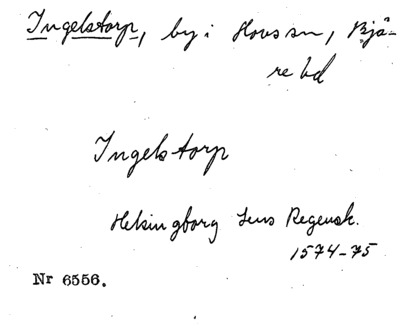 Ingelstorp, by i Hovs sn, Bjä-
re hd
Ingelstorp
Helsingborg Lens Regensk.
1574-75
Nr 6556.